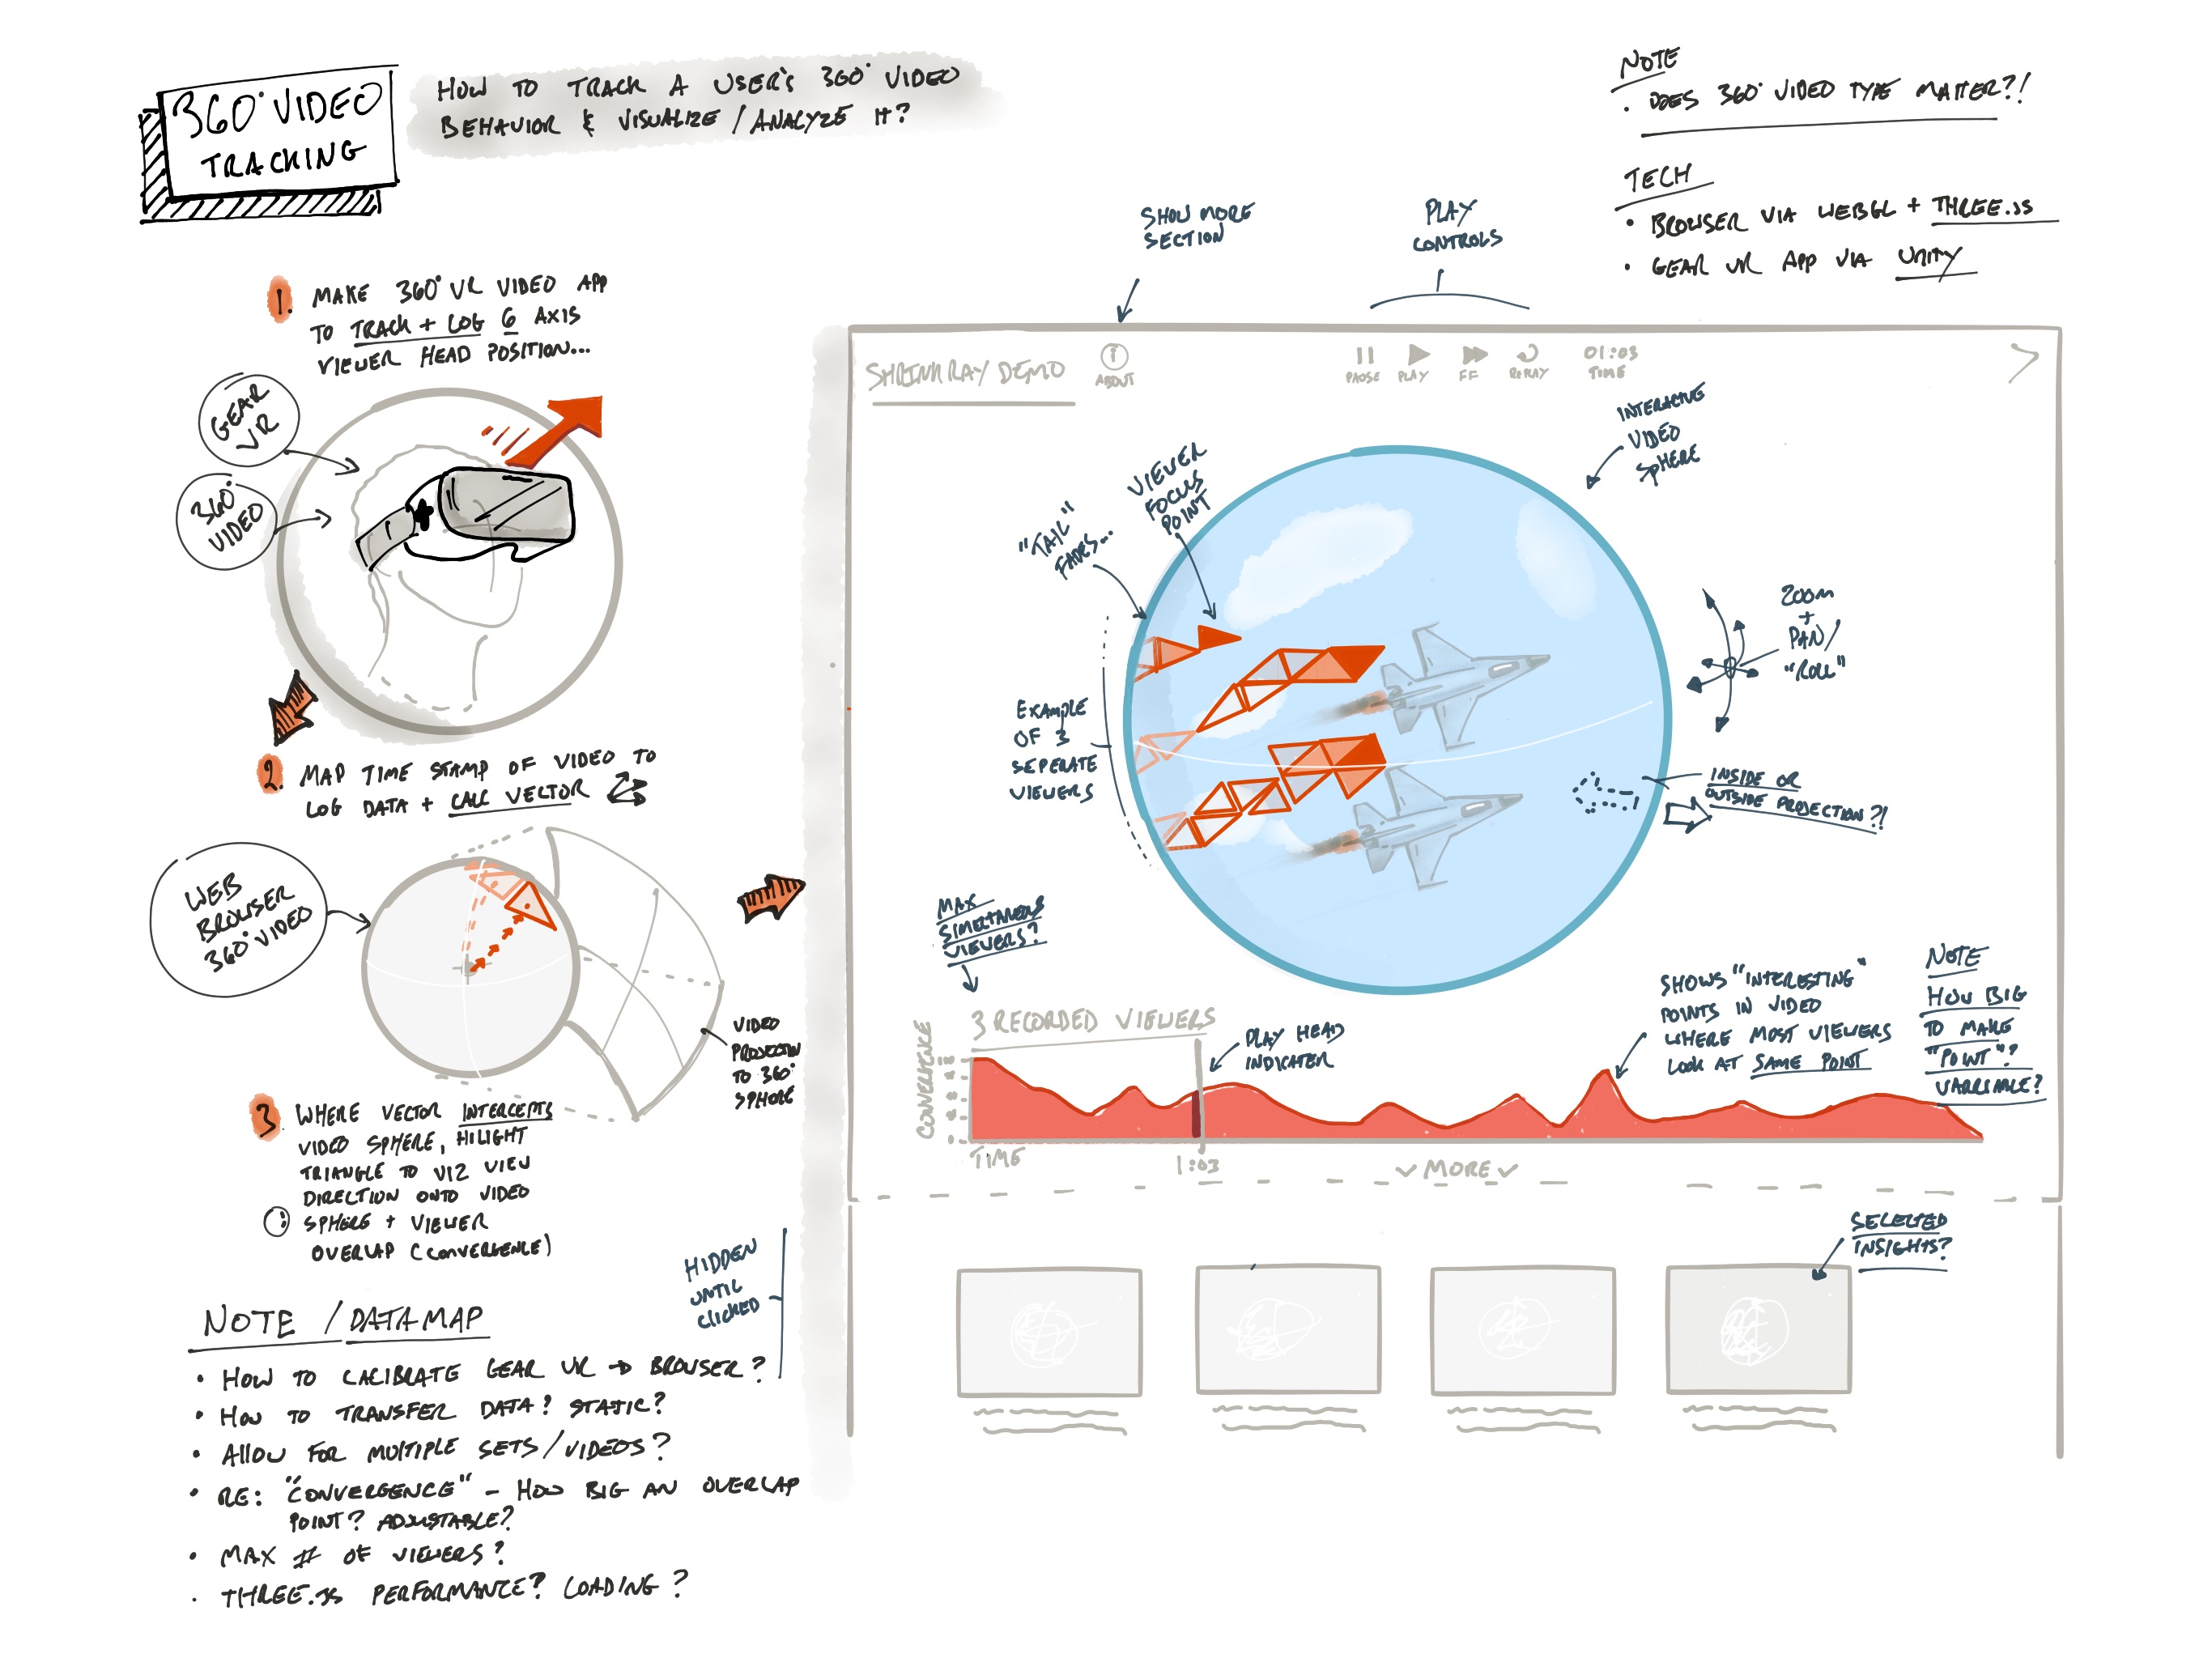 360° VIDEO
TRACKING
HOW TO TRACK A USER'S 360° VIDEO
BEHAVIOR & VISUALIZE / ANALYZE IT?
NOTE
• DOES 360° VIDEO TYPE MATTER?!
TECH
• BROWSER VIA WEBGL + THREE.JS
• GEAR VR APP VIA UNITY
1. MAKE 360° VR VIDEO APP
TO TRACK + LOG 6 AXIS
VIEWER HEAD POSITION...
GEAR
VR
360°
VIDEO
2. MAP TIME STAMP OF VIDEO TO
LOG DATA + CALC VECTOR
WEB
BROWSER
360° VIDEO
VIDEO
PROJECTION
TO 360°
SPHERE
3. WHERE VECTOR INTERCEPTS
VIDEO SPHERE, HILIGHT
TRIANGLE TO VIZ VIEW
DIRECTION ONTO VIDEO
SPHERE + VIEWER
OVERLAP (CONVERGENCE)
NOTE / DATA MAP
• HOW TO CALIBRATE GEAR VR → BROWSER?
• HOW TO TRANSFER DATA? STATIC?
• ALLOW FOR MULTIPLE SETS/VIDEOS?
• RE: "CONVERGENCE" - HOW BIG AN OVERLAP
POINT? ADJUSTABLE?
• MAX # OF VIEWERS?
• THREE.JS PERFORMANCE? LOADING?
SHOW MORE
SECTION
PLAY
CONTROLS
SHRINKRAY DEMO
i
ABOUT
PAUSE
PLAY
FF
REPLAY
01:03
TIME
INTERACTIVE
VIDEO
SPHERE
"TAIL"
FADES...
VIEWER
FOCUS
POINT
ZOOM
+
PAN/
"ROLL"
EXAMPLE
OF 3
SEPERATE
VIEWERS
INSIDE OR
OUTSIDE PROJECTION?!
MAX
SIMULTANEOUS
VIEWERS?
3 RECORDED VIEWERS
PLAY HEAD
INDICATER
SHOWS "INTERESTING"
POINTS IN VIDEO
WHERE MOST VIEWERS
LOOK AT SAME POINT
NOTE
HOW BIG
TO MAKE
"POINT"?
VARRIABLE?
CONVERGENCE
TIME
1:03
MORE
HIDDEN
UNTIL
CLICKED
SELECTED
INSIGHTS?